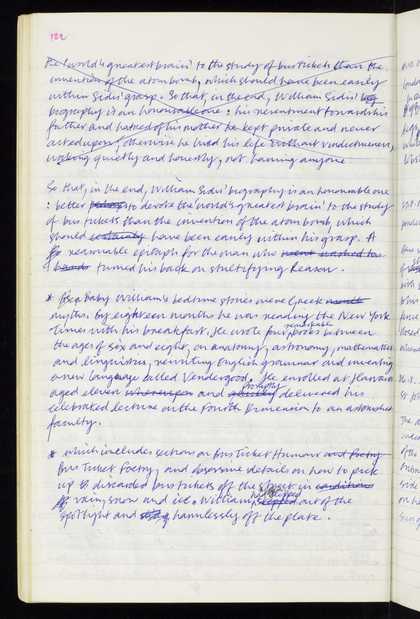 122
the 'world's greatest brain' to the study of bus tickets than the
invention of the atom bomb, which should have been easily
within Sidis' grasp. So that, in the end, William Sidis' big
biography is an honourable one: his resentment towards his
father and hatred of his mother he kept private and never
acted upon; otherwise he lived his life without vindictiveness,
working quietly and honestly, not harming anyone
So that, in the end, William Sidis' biography is an honourable one
: better to devote the 'world's greatest brain' to the study
of bus tickets than the invention of the atom bomb, which
should certainly have been easily within his grasp. A
reasonable epitaph for the man who
turned his back on stultifying Reason.
* Baby William's bedtime stories were Greek
myths. By eighteen months he was reading the New York
Times with his breakfast. He wrote four remarkable books between
the ages of six and eight, on anatomy, astronomy, mathematics
and linguistics, rewriting English grammar and inventing
a new language called Vendergood. He enrolled at Harvard
aged eleven and promptly delivered his
celebrated lecture on the Fourth Dimension to an astonished
faculty.
* which includes section on Bus Ticket Humour and Poetry
Bus Ticket Poetry, and absorbing details on how to pick
up discarded bus tickets off the street in conditions
rain, snow and ice. William stepped out of the
spotlight and harmlessly off the plate.